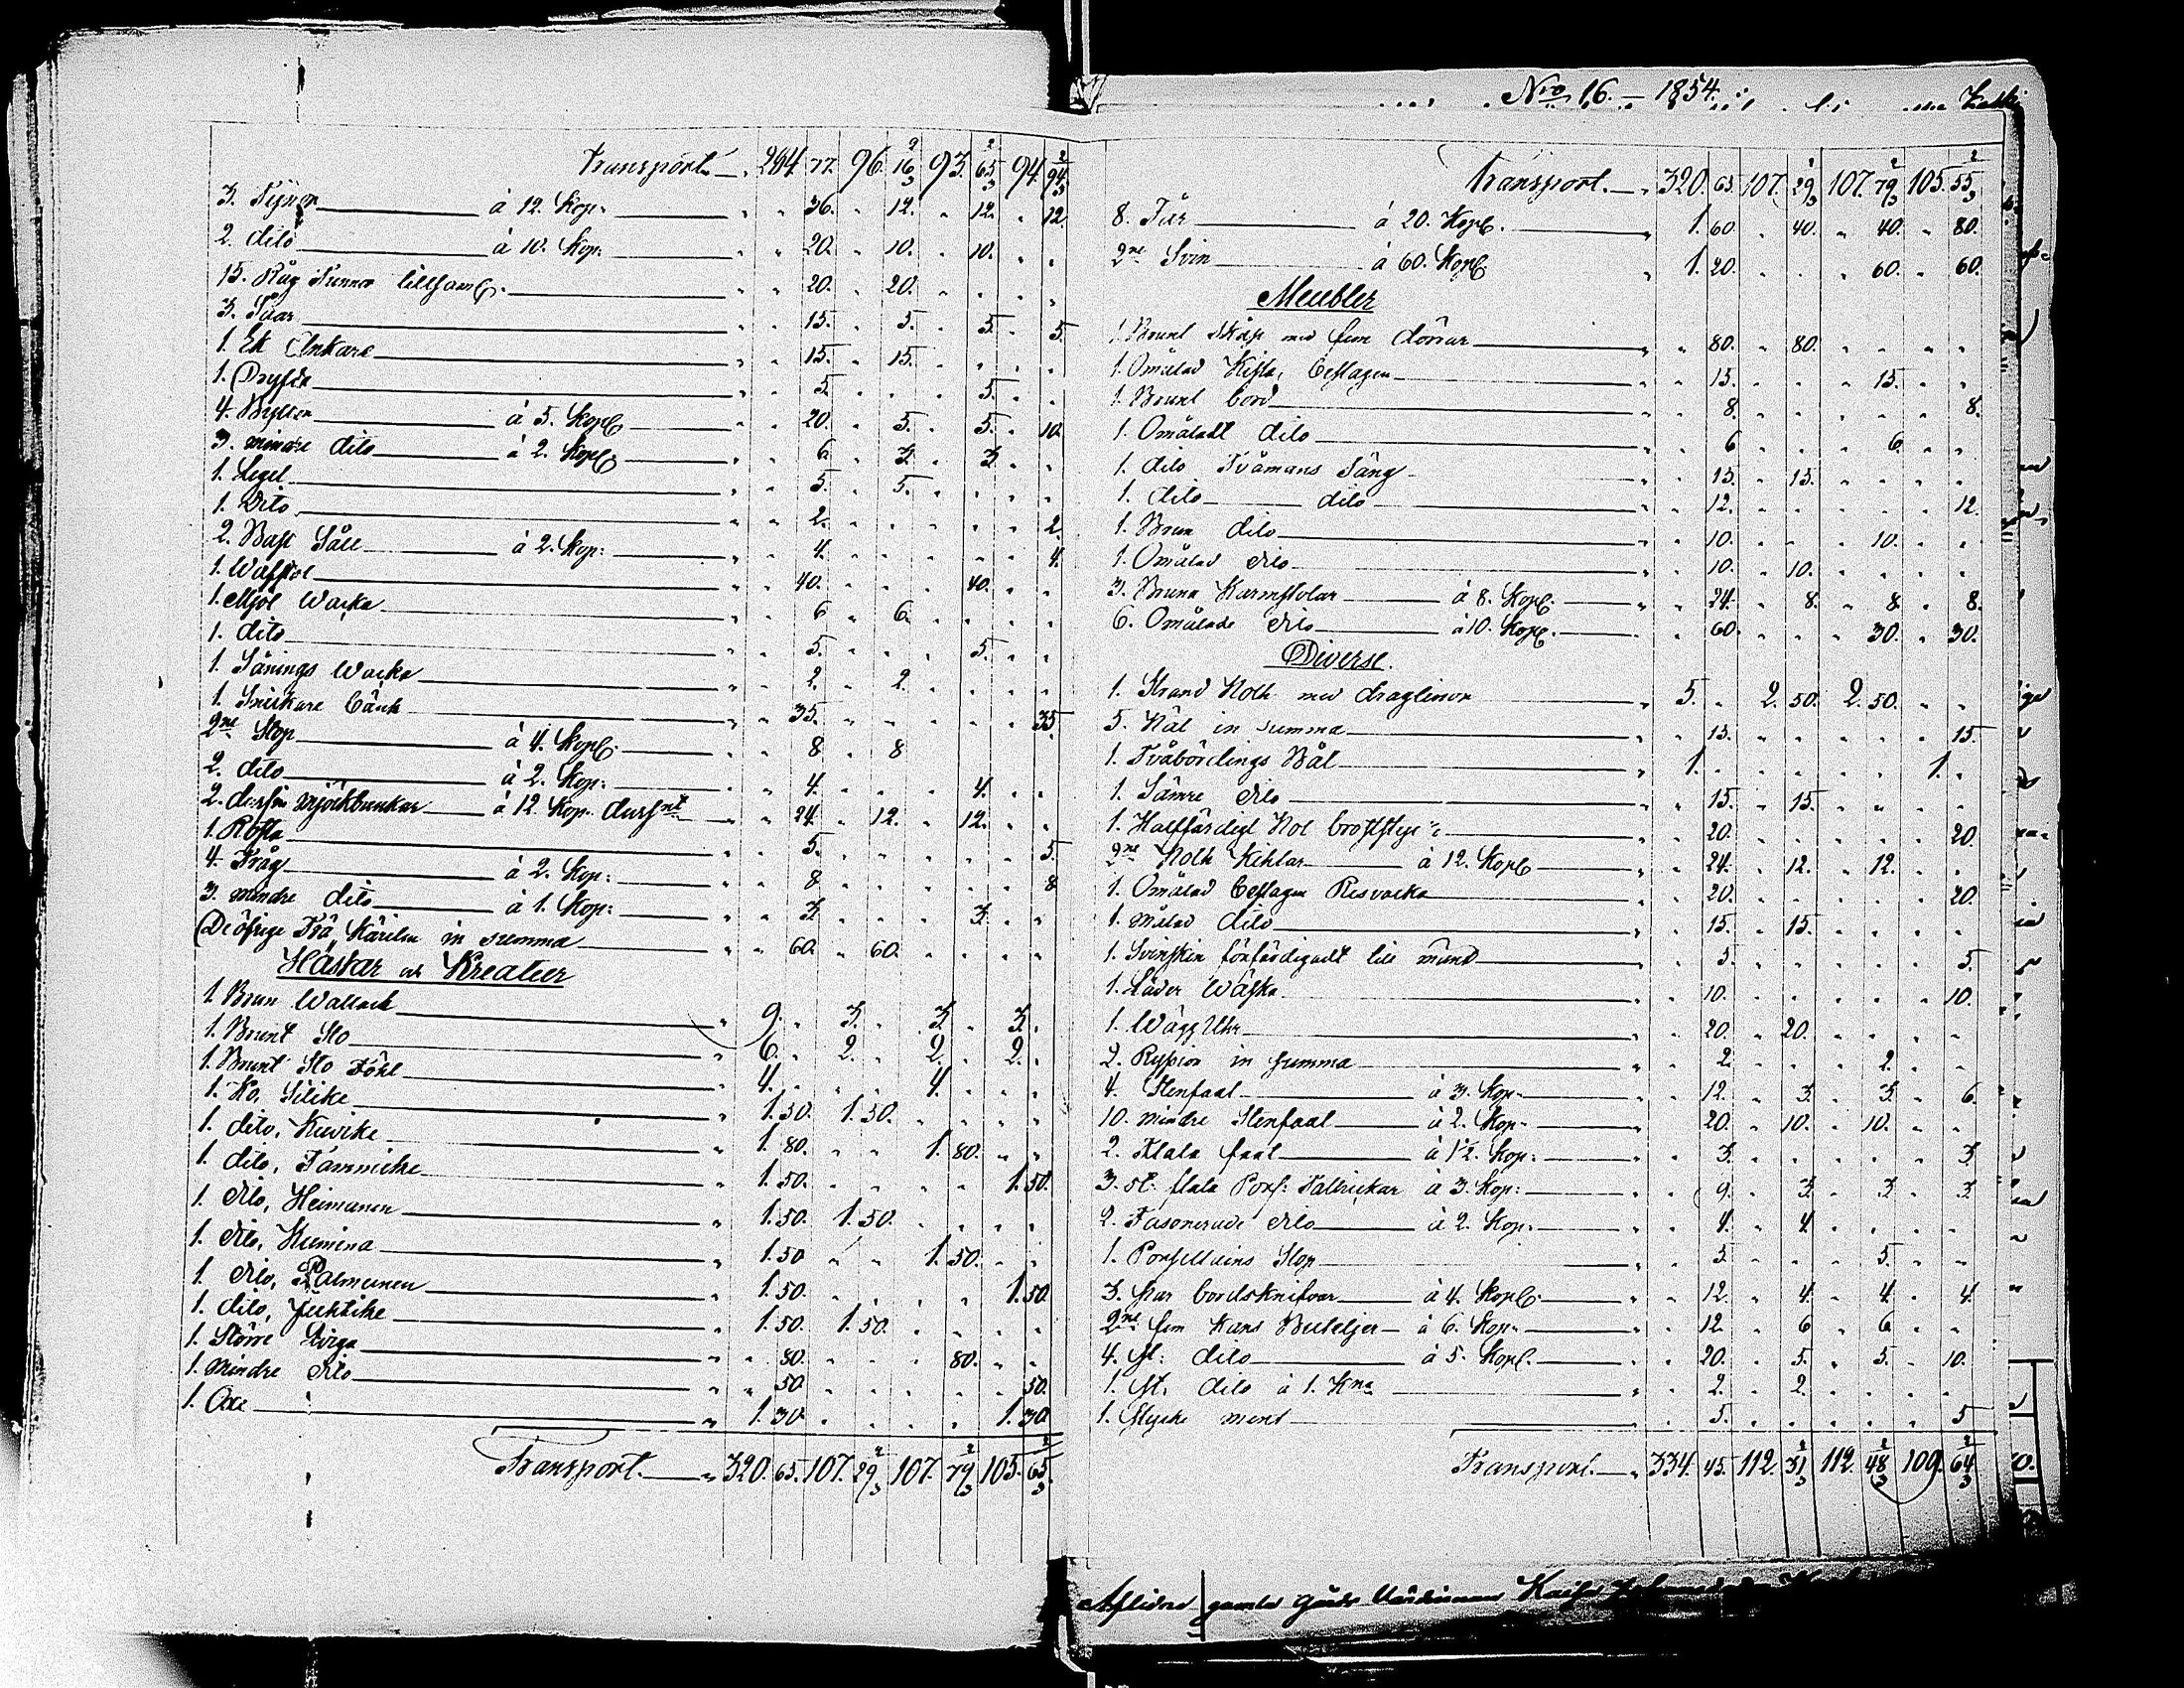 Transport 284. 77. 96. 16 2/3 93. 65 2/3 94. 94 2/3
3. Tijnor à 12. Kop: 36. 12. 12. 12.
2. dito à 10. Kop: 20. 10. 10.
15. Råg Tunnor tillsam 20. 20.
3. Såar 15. 5. 5. 5.
1. Ek Ankare 15. 15.
1. 5. 5.
4. Byttor à 5. Kop 20. 5. 5. 10.
3. mindre dito à 2. Kop 6. 3. 3.
1. Legel 5. 5.
1. Dito 2. 2.
2. Bast Såll à 2. Kop: 4. 4.
1. Wäfstol 40. 40.
1. Mjöl Wacka 6. 6.
1. dito 5. 5.
1. Sånings Wacka 2. 2.
1. Snickare bänk 35. 35.
2ne Stop à 4. Kop 8 8
2. dito à 2. Kop: 4. 4.
2. dussin Mjölkbunkar à 12 Kop dussnt 24. 12. 12.
1. 5. 5.
4. Tråg à 2. Kop: 8 8
3. mindre dito à 1. Kop: 3. 3.
De öfrige Trä Kärilen in summa 60. 60.
Hästar och Kreatur
1. Brun Wallack 9. 3. 3. 3.
1. Brunt Sto 6. 2. 2. 2.
1. Brunt Sto Föhl 4. 4.
1. Ko, 1. 50. 1. 50.
1. dito, 1. 80. 1. 80.
1. dito, Tammicke 1. 50. 1. 50.
1. dito, Heimanen 1. 50. 1. 50.
1. dito, Kumina 1. 50 1. 50.
1. dito, Palmunen 1. 50. 1. 50
1. dito, 1. 50. 1. 50.
1. Större Qviga 80. 80.
1. Mindre dito 50 50.
1. Oxe 1. 30 1. 30
Transport. 320. 65. 107. 29 2/3 107. 79 2/3 105. 65 2/3
Nro 16. – 1854.
Transport. 320. 65. 107. 29 2/3 107. 79 2/3 105. 55 2/3
8. Får à 20. Kop. 1. 60. 40. 40. 80.
2ne Svin à 60. Kop 1. 20. 60. 60.
Meubler
1. Brunt Skåp med fem dörrar 80. 80.
1. Omålad Kista, beslagen 15. 15.
1. Brunt bord 8. 8.
1. Omåladt dito 6 6.
1. dito Tvåmans Säng 15. 15.
1. dito dito 12. 12.
1. Brun dito 10. 10.
1. Omålad dito 10. 10.
3. Bruna Karmstolar à 8. Kop. 24. 8. 8. 8.
6. Omålade dito à 10. Kop. 60. 30. 30.
Diverse.
1. Strand Noth med draglinor 5. 2. 50. 2. 50.
5. Nät in summa 15. 15.
1. Tvåbördings Båt 1. 1.
1. Sämre dito 15. 15.
1. Halffärdigt Not 20. 20.
2ne Noth Kihlar à 12. Kop 24. 12. 12.
1. Omålad beslagen Resvacka 20. 20.
1. målad dito 15. 15.
1. Svinskin förfärdigadt till 5. 5.
1. Läder Wäska 10. 10.
1. Wägg Uhr 20. 20.
2. in summa 2. 2.
4. Stenfaat à 3. Kop 12. 3. 3. 6.
10. mindre Stenfaat à 2. Kop 20. 10. 10.
2. Flata faat à 1½. Kop: 3. 3.
3. st: flata Porsl: Tallrickar à 3. Kop: 9. 3. 3. 3
2. Fasonerade dito à 2. Kop. 4. 4
1. Porsellains Stop 5 5.
3. Par bordsknifvar à 4. Kop 12. 4. 4. 4
2ne fem Kans Buteljer à 6. Kop 12 6 6
4. st: dito à 5. Kop. 20. 5. 5. 10.
1. st. dito à 1. Kna 2. 2.
1. Stycke 5. 5
Transport. 334. 45. 112. 51 2/3 112. 48 2/3 109. 64 2/3
Aflidne gamle Gårds Värdinnan